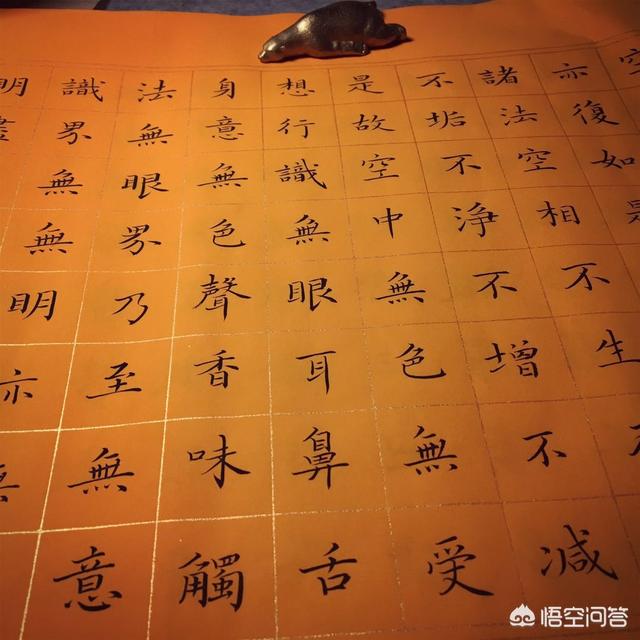 空
亦復如是
諸法空相不生不
不垢不淨不增不減
是故空中無色無受
想行識無眼耳鼻舌
身意無色聲香味觸
法無眼界乃至無意
識界無無明亦無
明盡
悟空问答